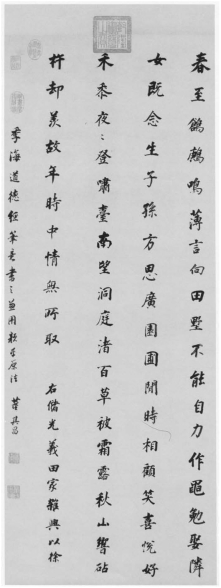 春至鶬鶊鳴薄言向田墅不能自力作黽勉娶隣
女既念生子孫方思廣園圃閒時相顧笑喜悅好
禾黍夜〻登嘯臺南望洞庭渚百草被霜露秋山響砧
杵却羨故年時中情無所取 右儲光羲田家雜興以徐
季海道德經筆意書之並用 原法 董其昌